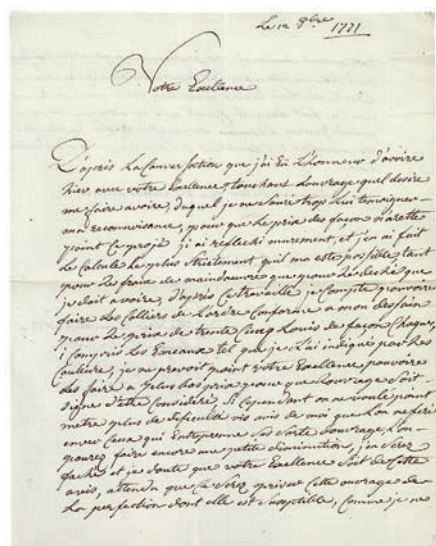 Le 12 8bre 1771
Votre Excellence
D'après La Conversation que j'ai Eü L'honneur d'avoire
hier avec votre Excellence, touchant L'ouvrage quel desire
me faire avoire, duquel je ne Saurè trop Lui temoigner
ma reconnoisance, pour que Le prix des façon n'arette
point Ce projè j'i ai reflechi murement, et j'en ai fait
Le Calcule Le plus strictement quil ma estè possible tant
pour Les fraix de maindœuvre que pour Le dechè que
je doit avoire, D'après Ce travaille je Compte pouvoire
faire Les Colliers de Lordre Conforme a mon dessain
pour Le prix de trente Cinq Louis de façon Chaque,
i Compris Les Emeaux tel que je L'ai indiquè pour Les
Couleurs, je ne prevoit point votre Excellence, pouvoire
Les faire a plus bas prix pour que L'ouvrage Soit
digne d'être Considerè, Si Cependant on ne voulè point
metre plus de dificultè vis avis de moi que L'on ne feré
enver Ceux qui Entreprenne Ses Sorte d'ouvrage, L'on
pourez faire encore une petite diminution, j'en Serez
fachè et je doute que votre Excellence Soit de Cette
avis, attendu que Ce Serez priver Cette ouvrage de
La perfection dont elle est Susceptible, Comme je ne